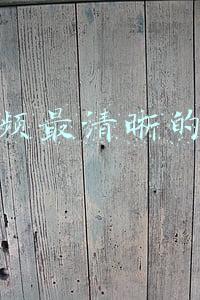 频最清晰的